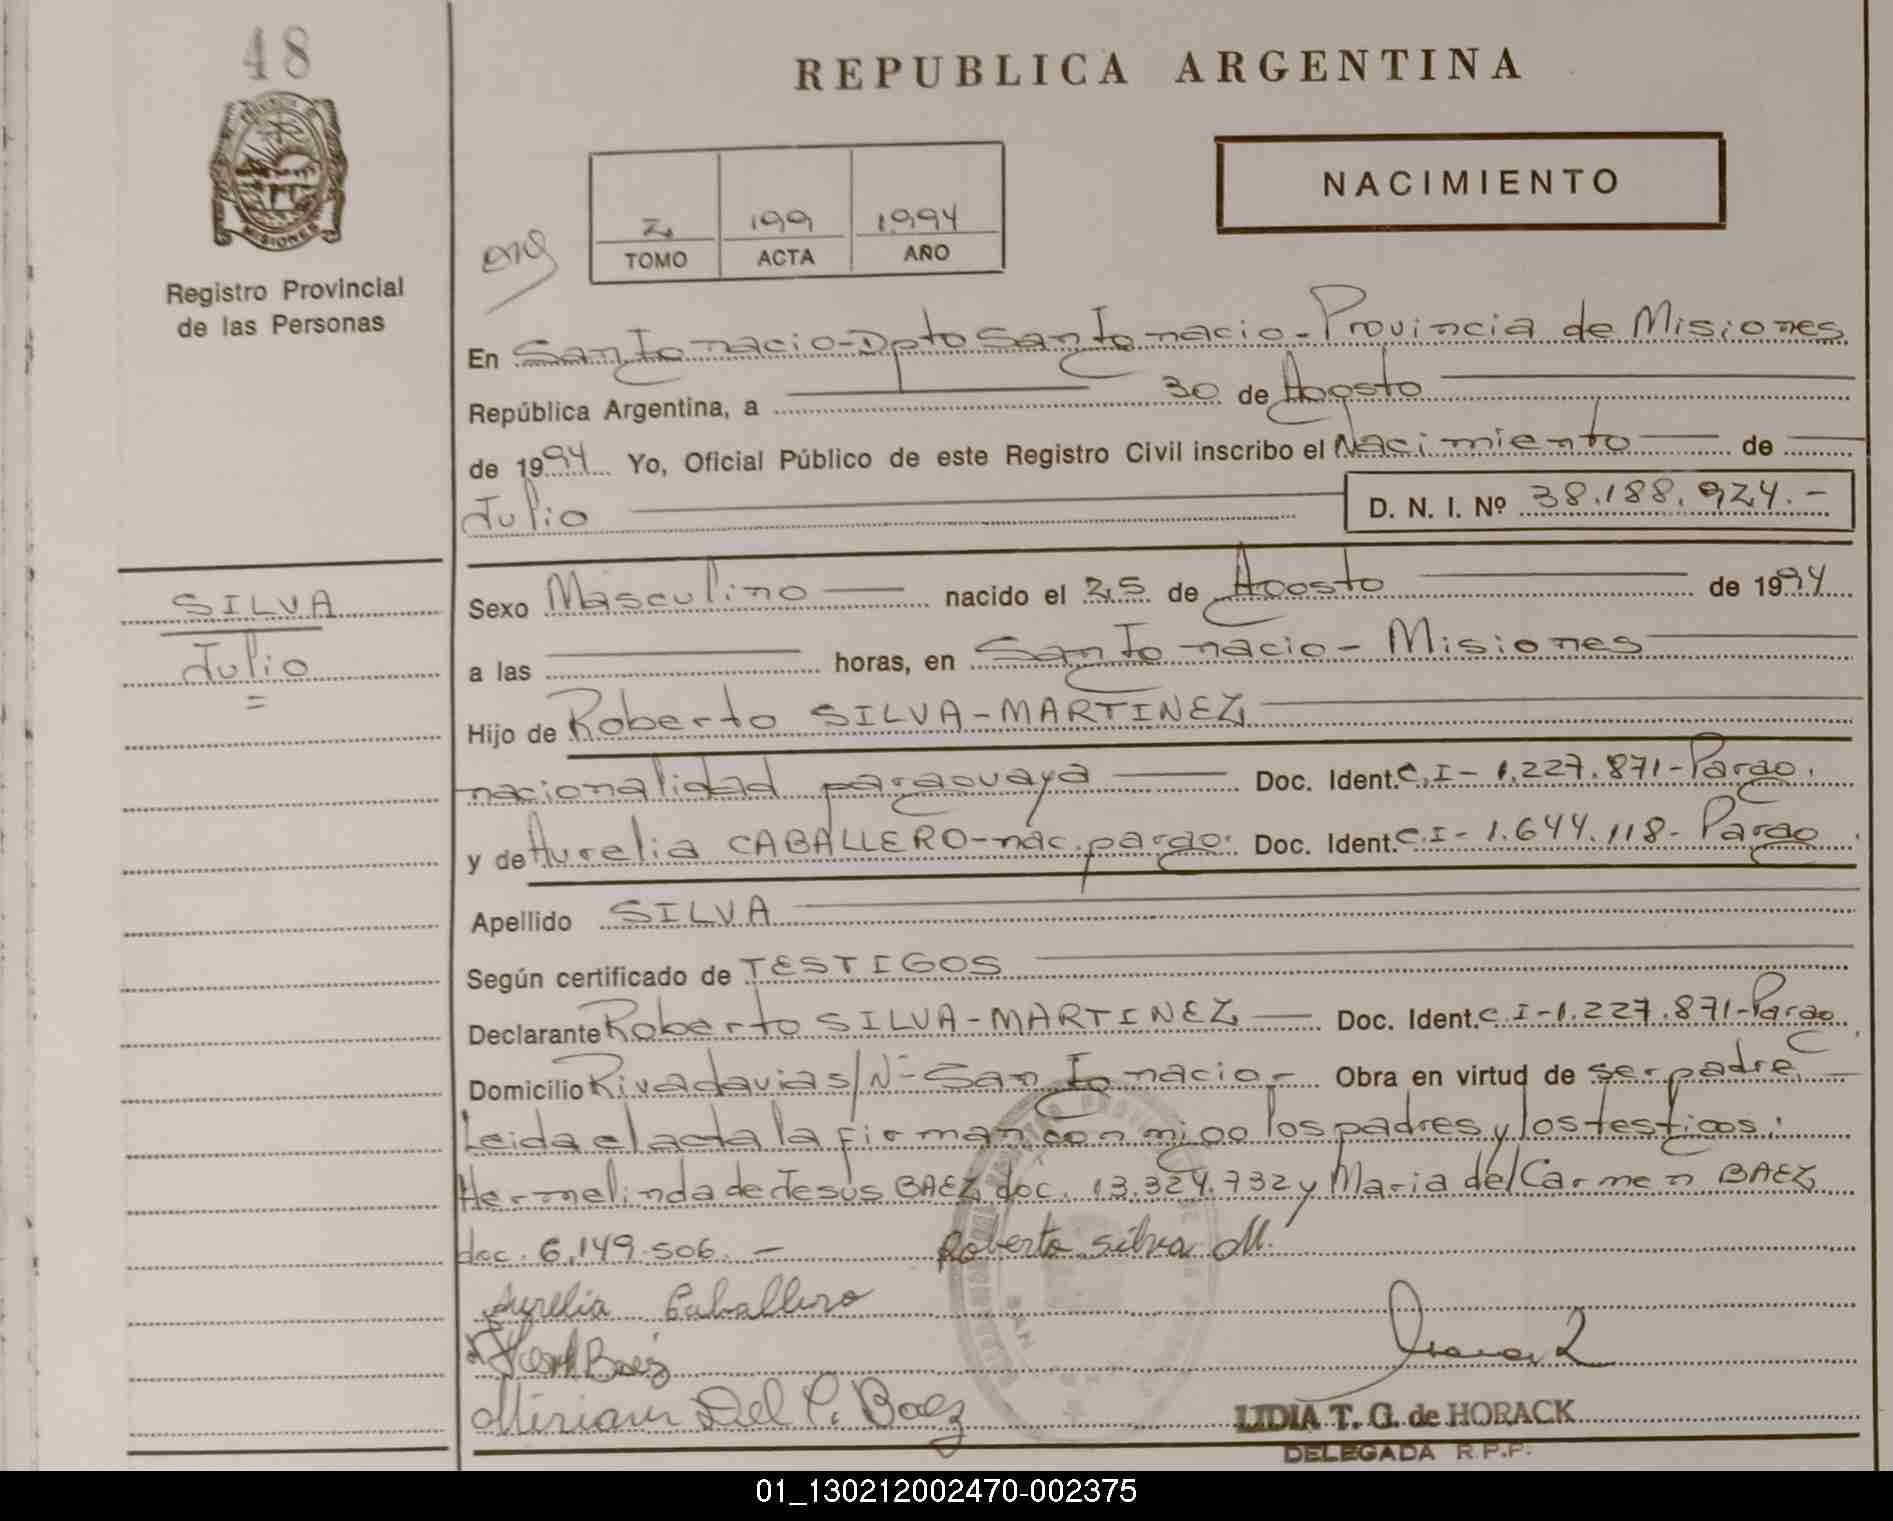 48
REPUBLICA ARGENTINA
NACIMIENTO
2 199 1994
TOMO ACTA AÑO
MISIONES
Registro Provincial
de las Personas
En San Ignacio-Dpto San Ignacio-Provincia de Misiones
República Argentina, a 30 de Agosto
de 1994 Yo, Oficial Público de este Registro Civil inscribo el Nacimiento de
Julio D. N. I. Nº 38.188.924.-
SILVA
Julio
Sexo Masculino nacido el 25 de Agosto de 1994
a las horas, en San Ignacio - Misiones
Hijo de Roberto SILVA-MARTINEZ
nacionalidad paraguaya Doc. Ident. C.I-1.227.871-Parag.
y de Aurelia CABALLERO-nac.parag. Doc. Ident. C.I-1.644.118-Parag.
Apellido SILVA
Según certificado de TESTIGOS
Declarante Roberto SILVA-MARTINEZ Doc. Ident. C.I-1.227.871-Parag.
Domicilio Rivadavia s/Nº-San Ignacio.- Obra en virtud de ser padre
Leida el acta la firman conmigo los padres y los testigos:
Hermelinda de Jesús BAEZ doc. 13.324.732 y Maria del Carmen BAEZ
doc. 6.149.506.- Roberto Silva M.
Aurelia Caballero
Baez
Miriam Del C. Baez
LIDIA T. G. de HORACK
DELEGADA R.P.P.
01_130212002470-002375